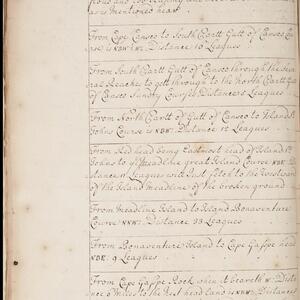 as is mentioned heart.
From Cape Canceo to South Eartt Gutt of Canceo Cou
rse is NBW ½W. Distance 10 Leagues
From South Eartt Gutt of Canceo through the
Reaches to gett through to the North Eartt Gutt
of Canceo Sundry Courses Distances Leagues
From North Eartt of Gutt of Canceo to Island St
Johns Course is NBW. Distance 12 Leagues
From Red head being Eastmost head of Island St
Johns to great Island Course NBE Dis
Leagues will Just fitch to the Westward
of the Island Meadline of the broken ground
From Meadline Island to Island Bonaventure
Course NNW. Distance 33 Leagues
From Bonaventure Island to Cape Gaspe head
NBE. 9 Leagues
From Cape Gaspe Rock when it beareth W. Dista
nce Miles to the Next head land is NNW. Distance